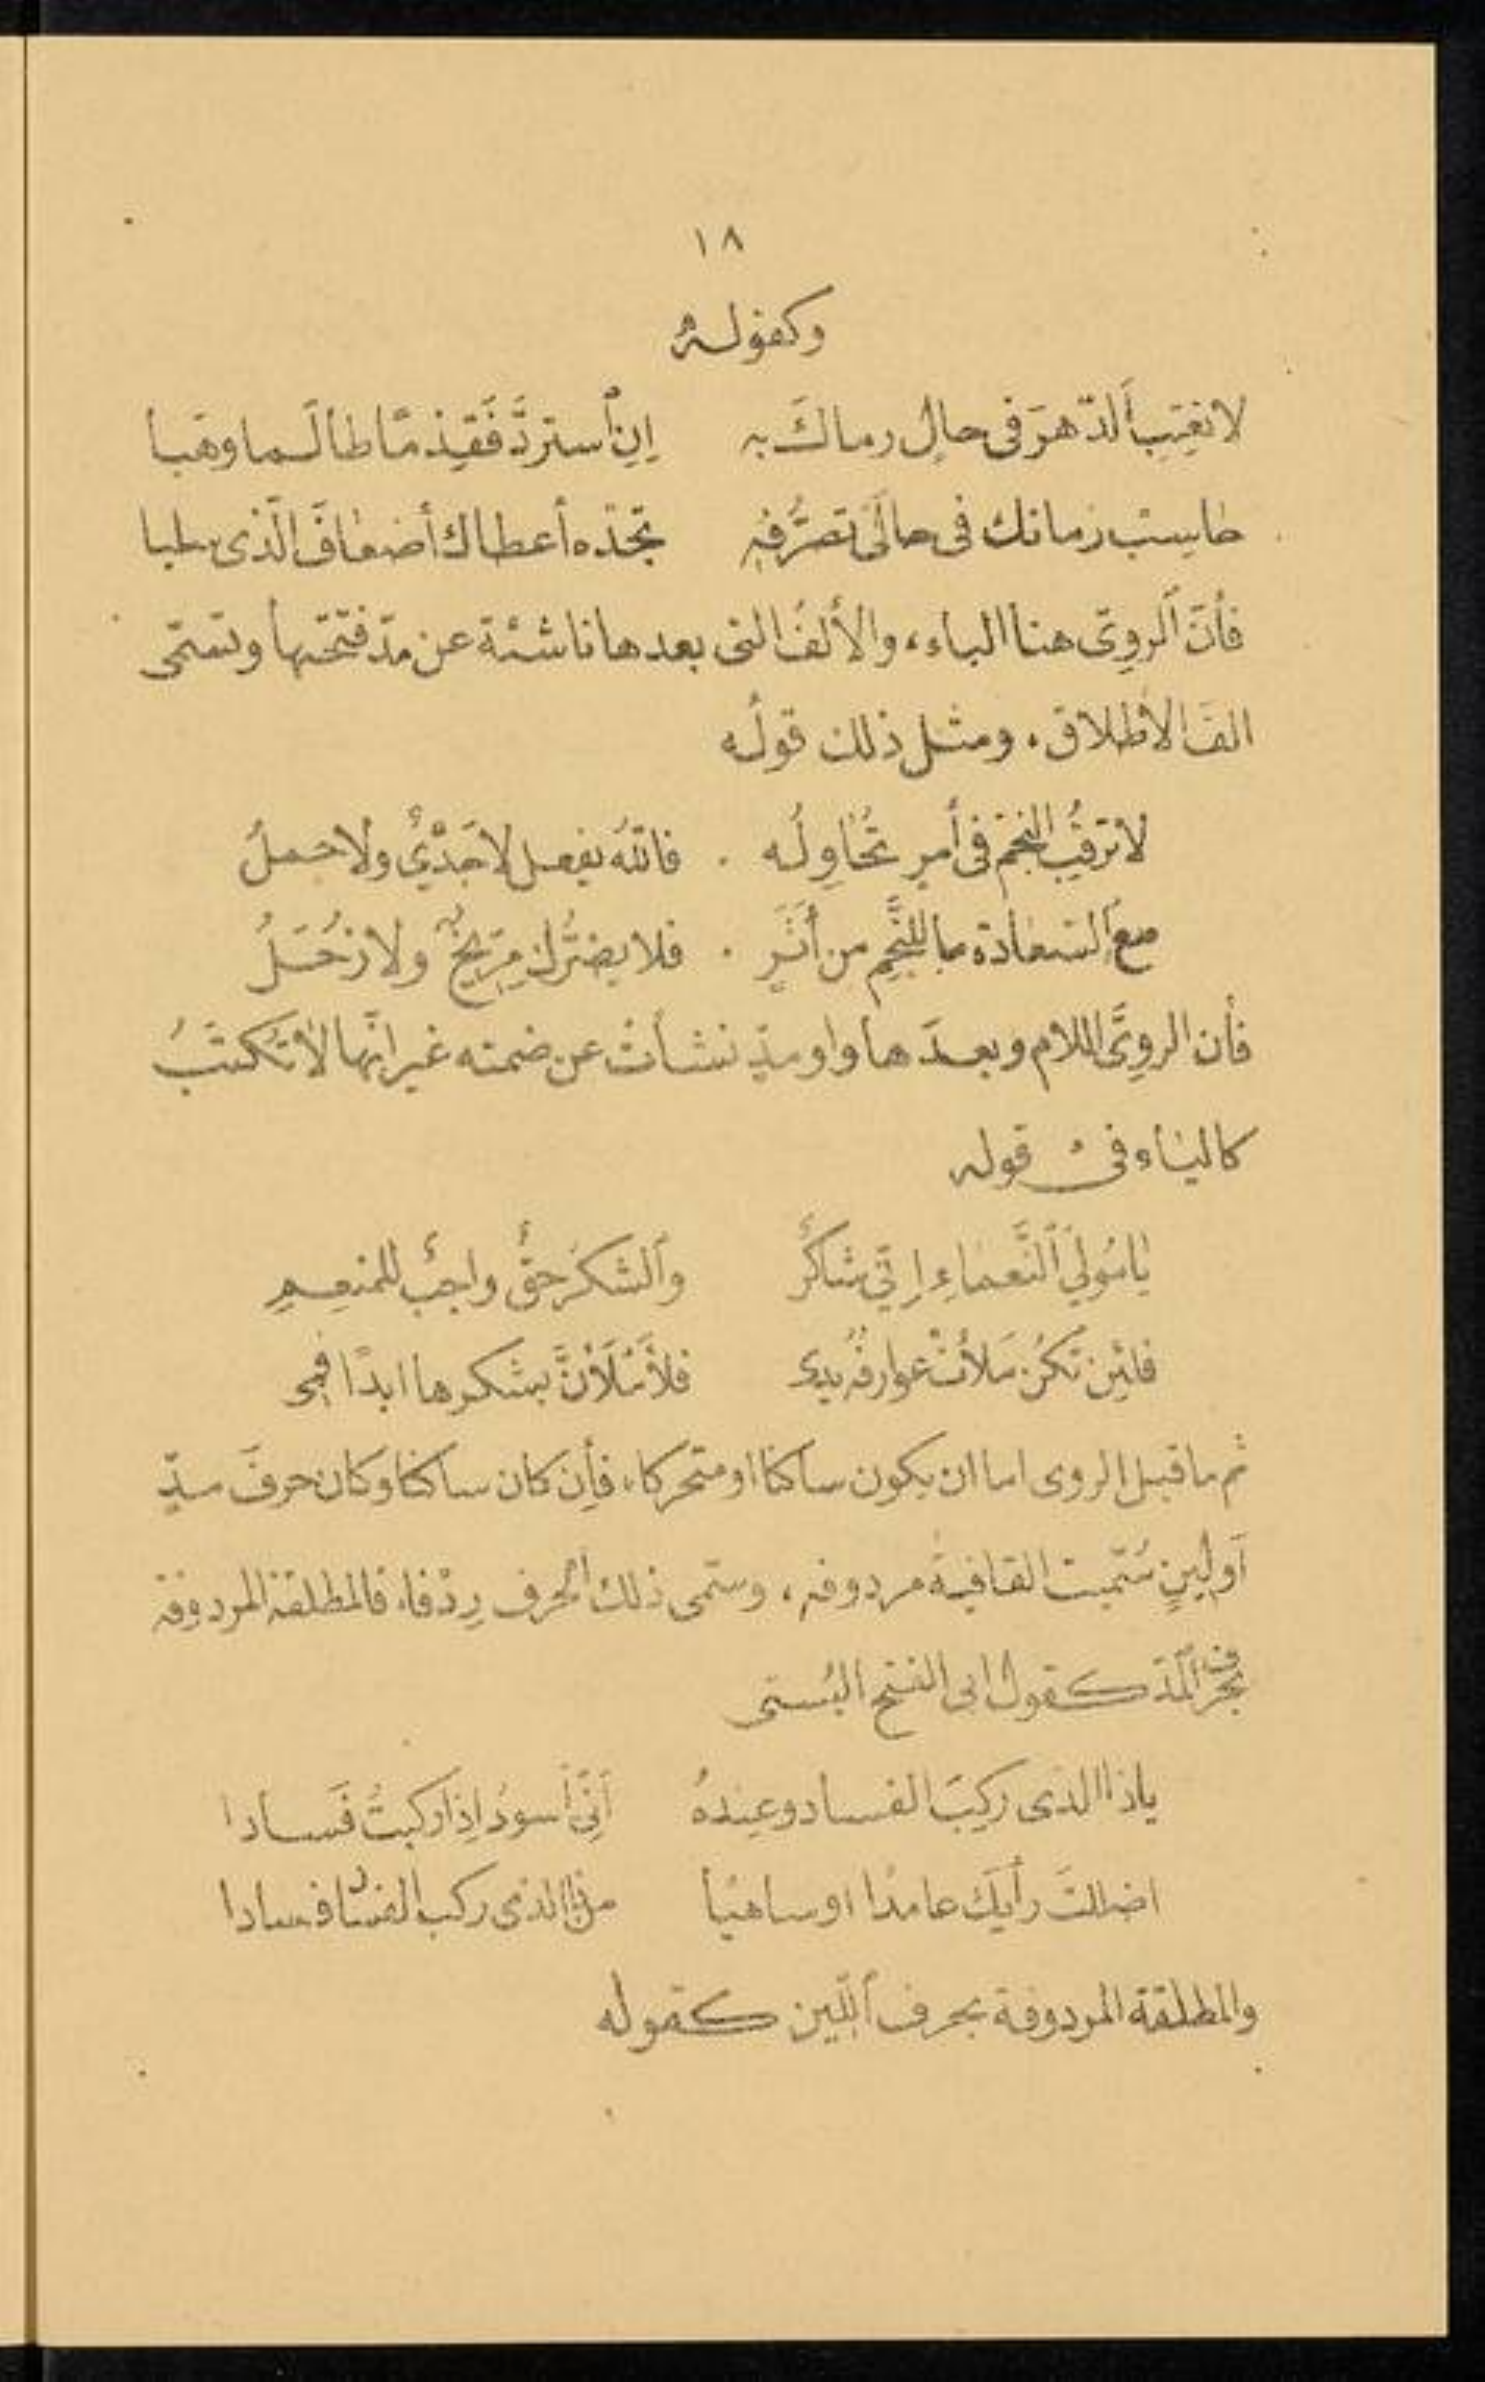 ١٨
وكقوله
لا تعتب الدّهرَ فى حالِ رماكَ به إن استردَّ فَقِدْمًا طالَما وهَبا
حاسِبْ زمانك فى حالَىْ تصرُّفه تجدْه أعطاك أضعافَ الّذى سلبا
فأنّ الروىّ هنا الباء، والألفُ التى بعدها ناشئة عن مدّ فتحتها وتسمّى
الفَ الأطلاق. ومثل ذلك قوله
لا ترقُبِ النجمَ فى أمرٍ تُحاوِلُه . فاللهُ يفعل لا جَدْىٌ ولا حملُ
معَ السعادة ما للنَّجمِ من أَثَرٍ . فلا يضرُّك مِرّيخٌ ولا زُحَلُ
فأن الروىَّ اللام وبعدَها واو مدّ نشأت عن ضمته غير انّها لا تُكتَبُ
كالياء فى قوله
يا مُولِىَ النَّعماءِ إنّي شاكرٌ والشكرُ حقٌّ واجبٌ للمنعِمِ
فلئِن تكُن مَلأَتْ عوارفُه يدى فلأَمْلَأنَّ بشكرها ابدًا فمى
ثم ما قبل الروى اما ان يكون ساكنا او متحركا، فأِن كان ساكنا وكان حرفَ مدّ
أو لينٍ سُمّيت القافيةُ مردوفه، وسمّى ذلك الحرف رِدْفا، فالمطلقة المردوفة
بحرف المدّ كقول ابى الفتح البُستى
ياذا الذى ركِبَ الفساد وعندهُ أنّى أسودُ اِذا ركبتُ فَسادا
اضللتَ رأيَكَ عامدًا او ساهيًا من ذا الذى ركب الفساد فسادا
والمطلقة المردوفة بحرف الّلين كقوله